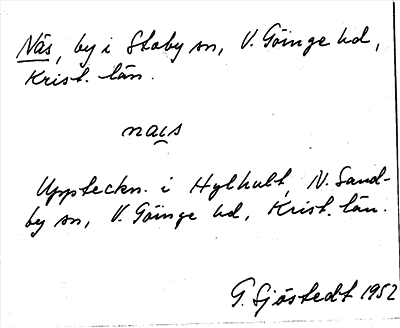 Näs, by i Stoby sn, V. Göinge hd,
Krist. län.
naus
Uppteckn. i Hylhult, N. Sand-
by sn, V. Göinge hd, Krist. län.
G. Sjöstedt 1952